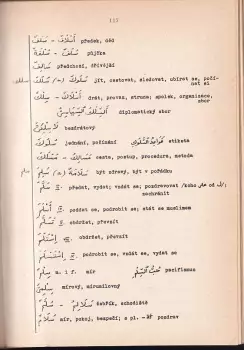 112
سَلَف – أَسْلَاف předek, děd
سُلْفَة – سُلَف půjčka
سَالِف předchozí, dřívější
سلك سَلَكَ (ـُـ) سُلُوك jít, cestovat, sledovat, obírat se, počínat si
سِلْك – أَسْلَاك drát, provaz, struna; spolek, organizace, sbor
السِّلْك السِّيَاسِيّ diplomatický sbor
لَاسِلْكِيّ bezdrátový
سُلُوك jednání, počínání etiketa
مَسْلَك – مَسَالِك cesta, postup, procedura, metoda
سلم سَلِمَ (ـَـ) být zdravý, být v pořádku
سَلَّمَ II. předat, vydat; vzdát se; pozdravovat /koho على od من/; zachránit
أَسْلَمَ IV. poddat se, podrobit se; stát se muslimem
تَسَلَّمَ V. obdržet, převzít
اِسْتَلَمَ VIII. obdržet, převzít
اِسْتَسْلَمَ X. podrobit se, vzdát se, vydat se
سِلْم m. i f. mír pacifismus
سِلْمِيّ mírový, mírumilovný
سُلَّم – سَلَالِم žebřík, schodiště
سَلَام mír, pokoj, bezpečí; s pl. -āt pozdrav